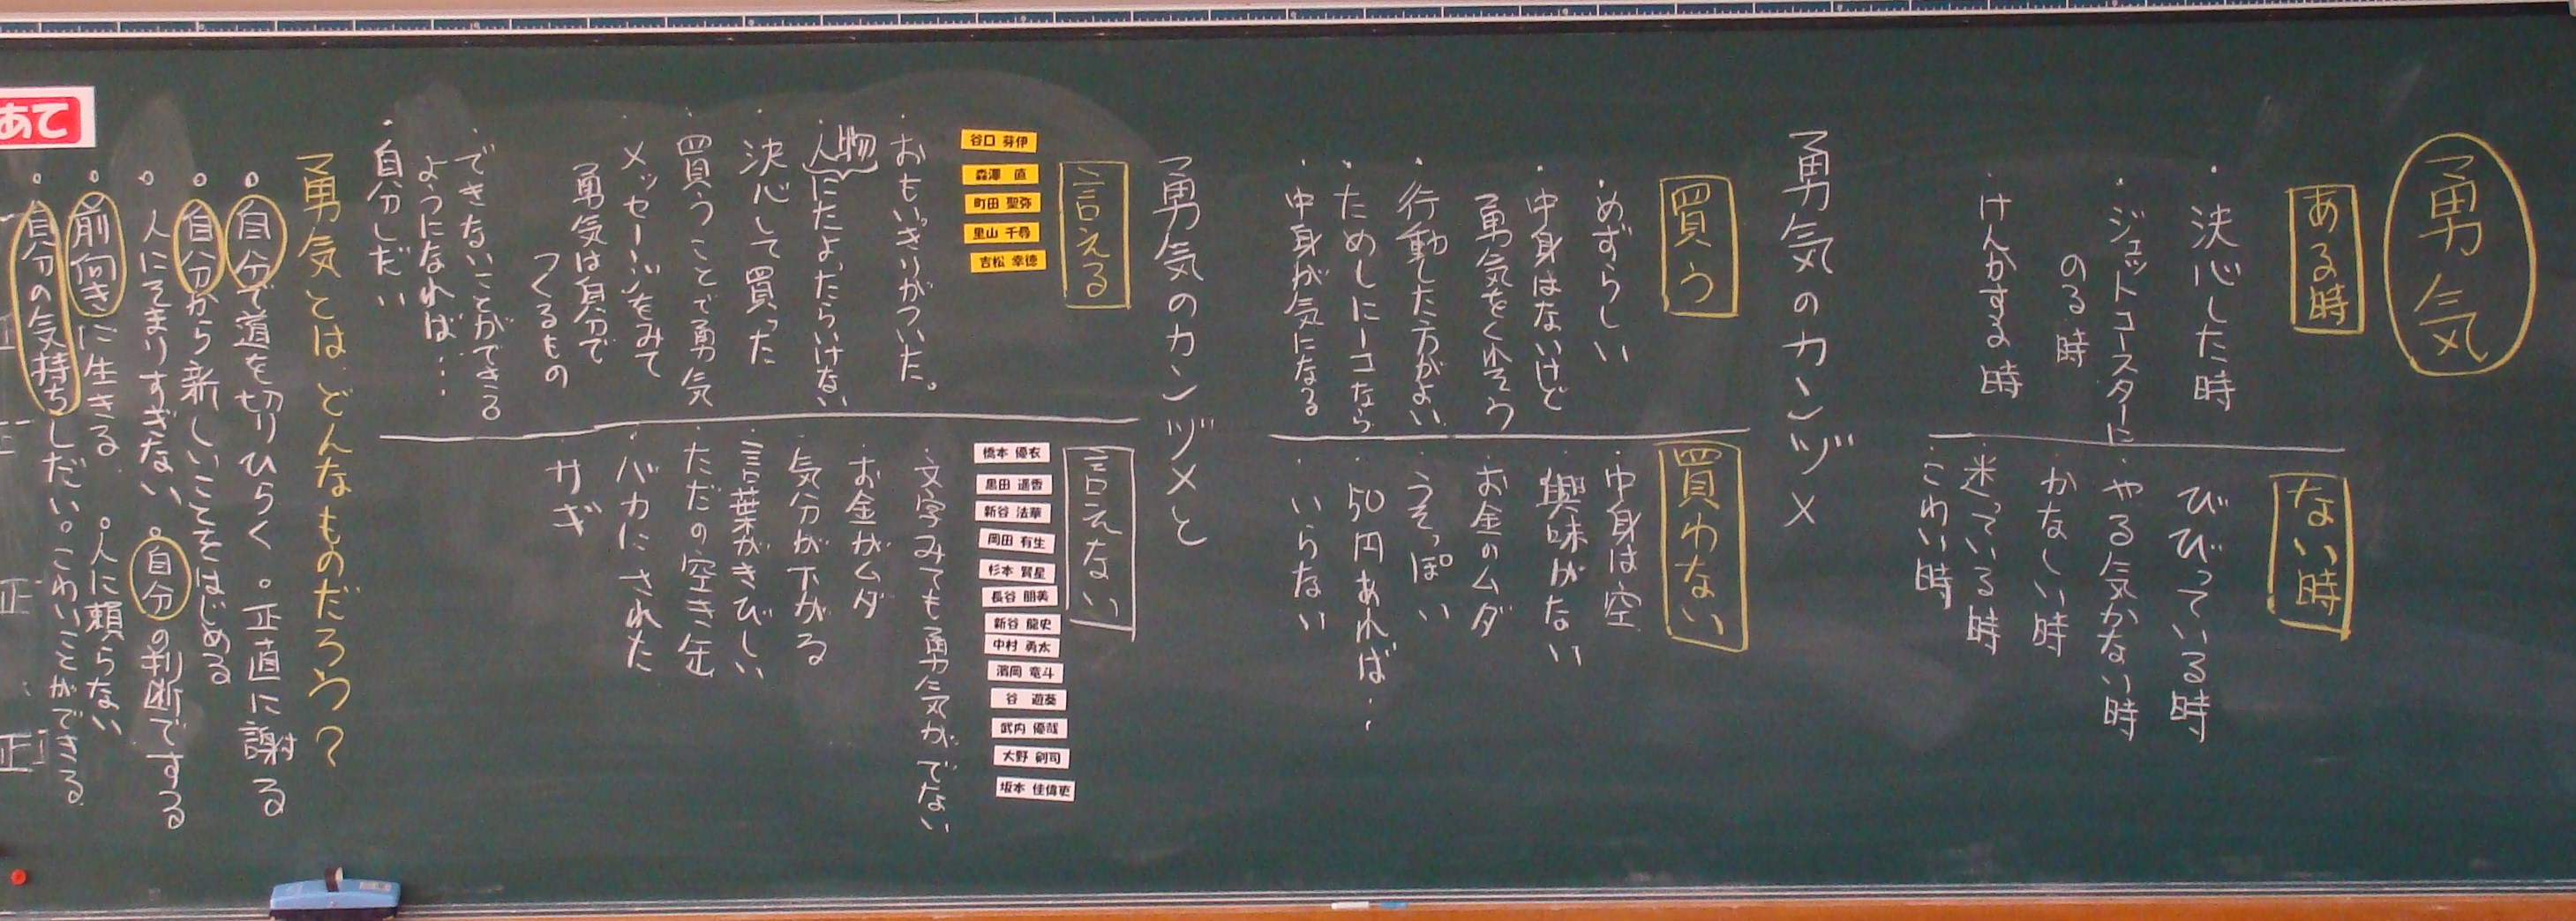 勇気
ある時
・決心した時
・ジェットコースターに
のる時
・けんかする時
ない時
・びびっている時
・やる気がない時
・かなしい時
・迷っている時
・こわい時
勇気のカンヅメ
買う
・めずらしい
・中身はないけど
勇気をくれそう
・行動した方がよい
・ためしに一コなら
・中身が気になる
買わない
・中身は空
・興味がない
・お金のムダ
・うそっぽい
・50円あれば…
・いらない
勇気のカンヅメと
言える
谷口 芽伊
森澤 直
町田 聖弥
里山 千尋
吉松 幸徳
・おもいっきりがついた。
・人物にたよったらいけない
・決心して買った
・買うことで勇気
・メッセージをみて
勇気は自分で
つくるもの
・できないことができる
ようになれば…
・自分しだい
言えない
橋本 優衣
黒田 遥香
新谷 法華
岡田 有生
杉本 賢星
長谷 朋美
新谷 龍史
中村 勇太
濱岡 竜斗
谷 遊葵
武内 優哉
大野 剣司
坂本 佳偉吏
・文字みても勇気がでない
・お金がムダ
・気分が下がる
・言葉がきびしい
・ただの空き缶
・バカにされた
・サギ
勇気とは、どんなものだろう?
。自分で道を切りひらく 。正直に謝る
。自分から新しいことをはじめる
。人にそまりすぎない 。自分の判断でする
。前向きに生きる 。人に頼らない
。自分の気持ちしだい。こわいことができる
あて
正
正
正
正